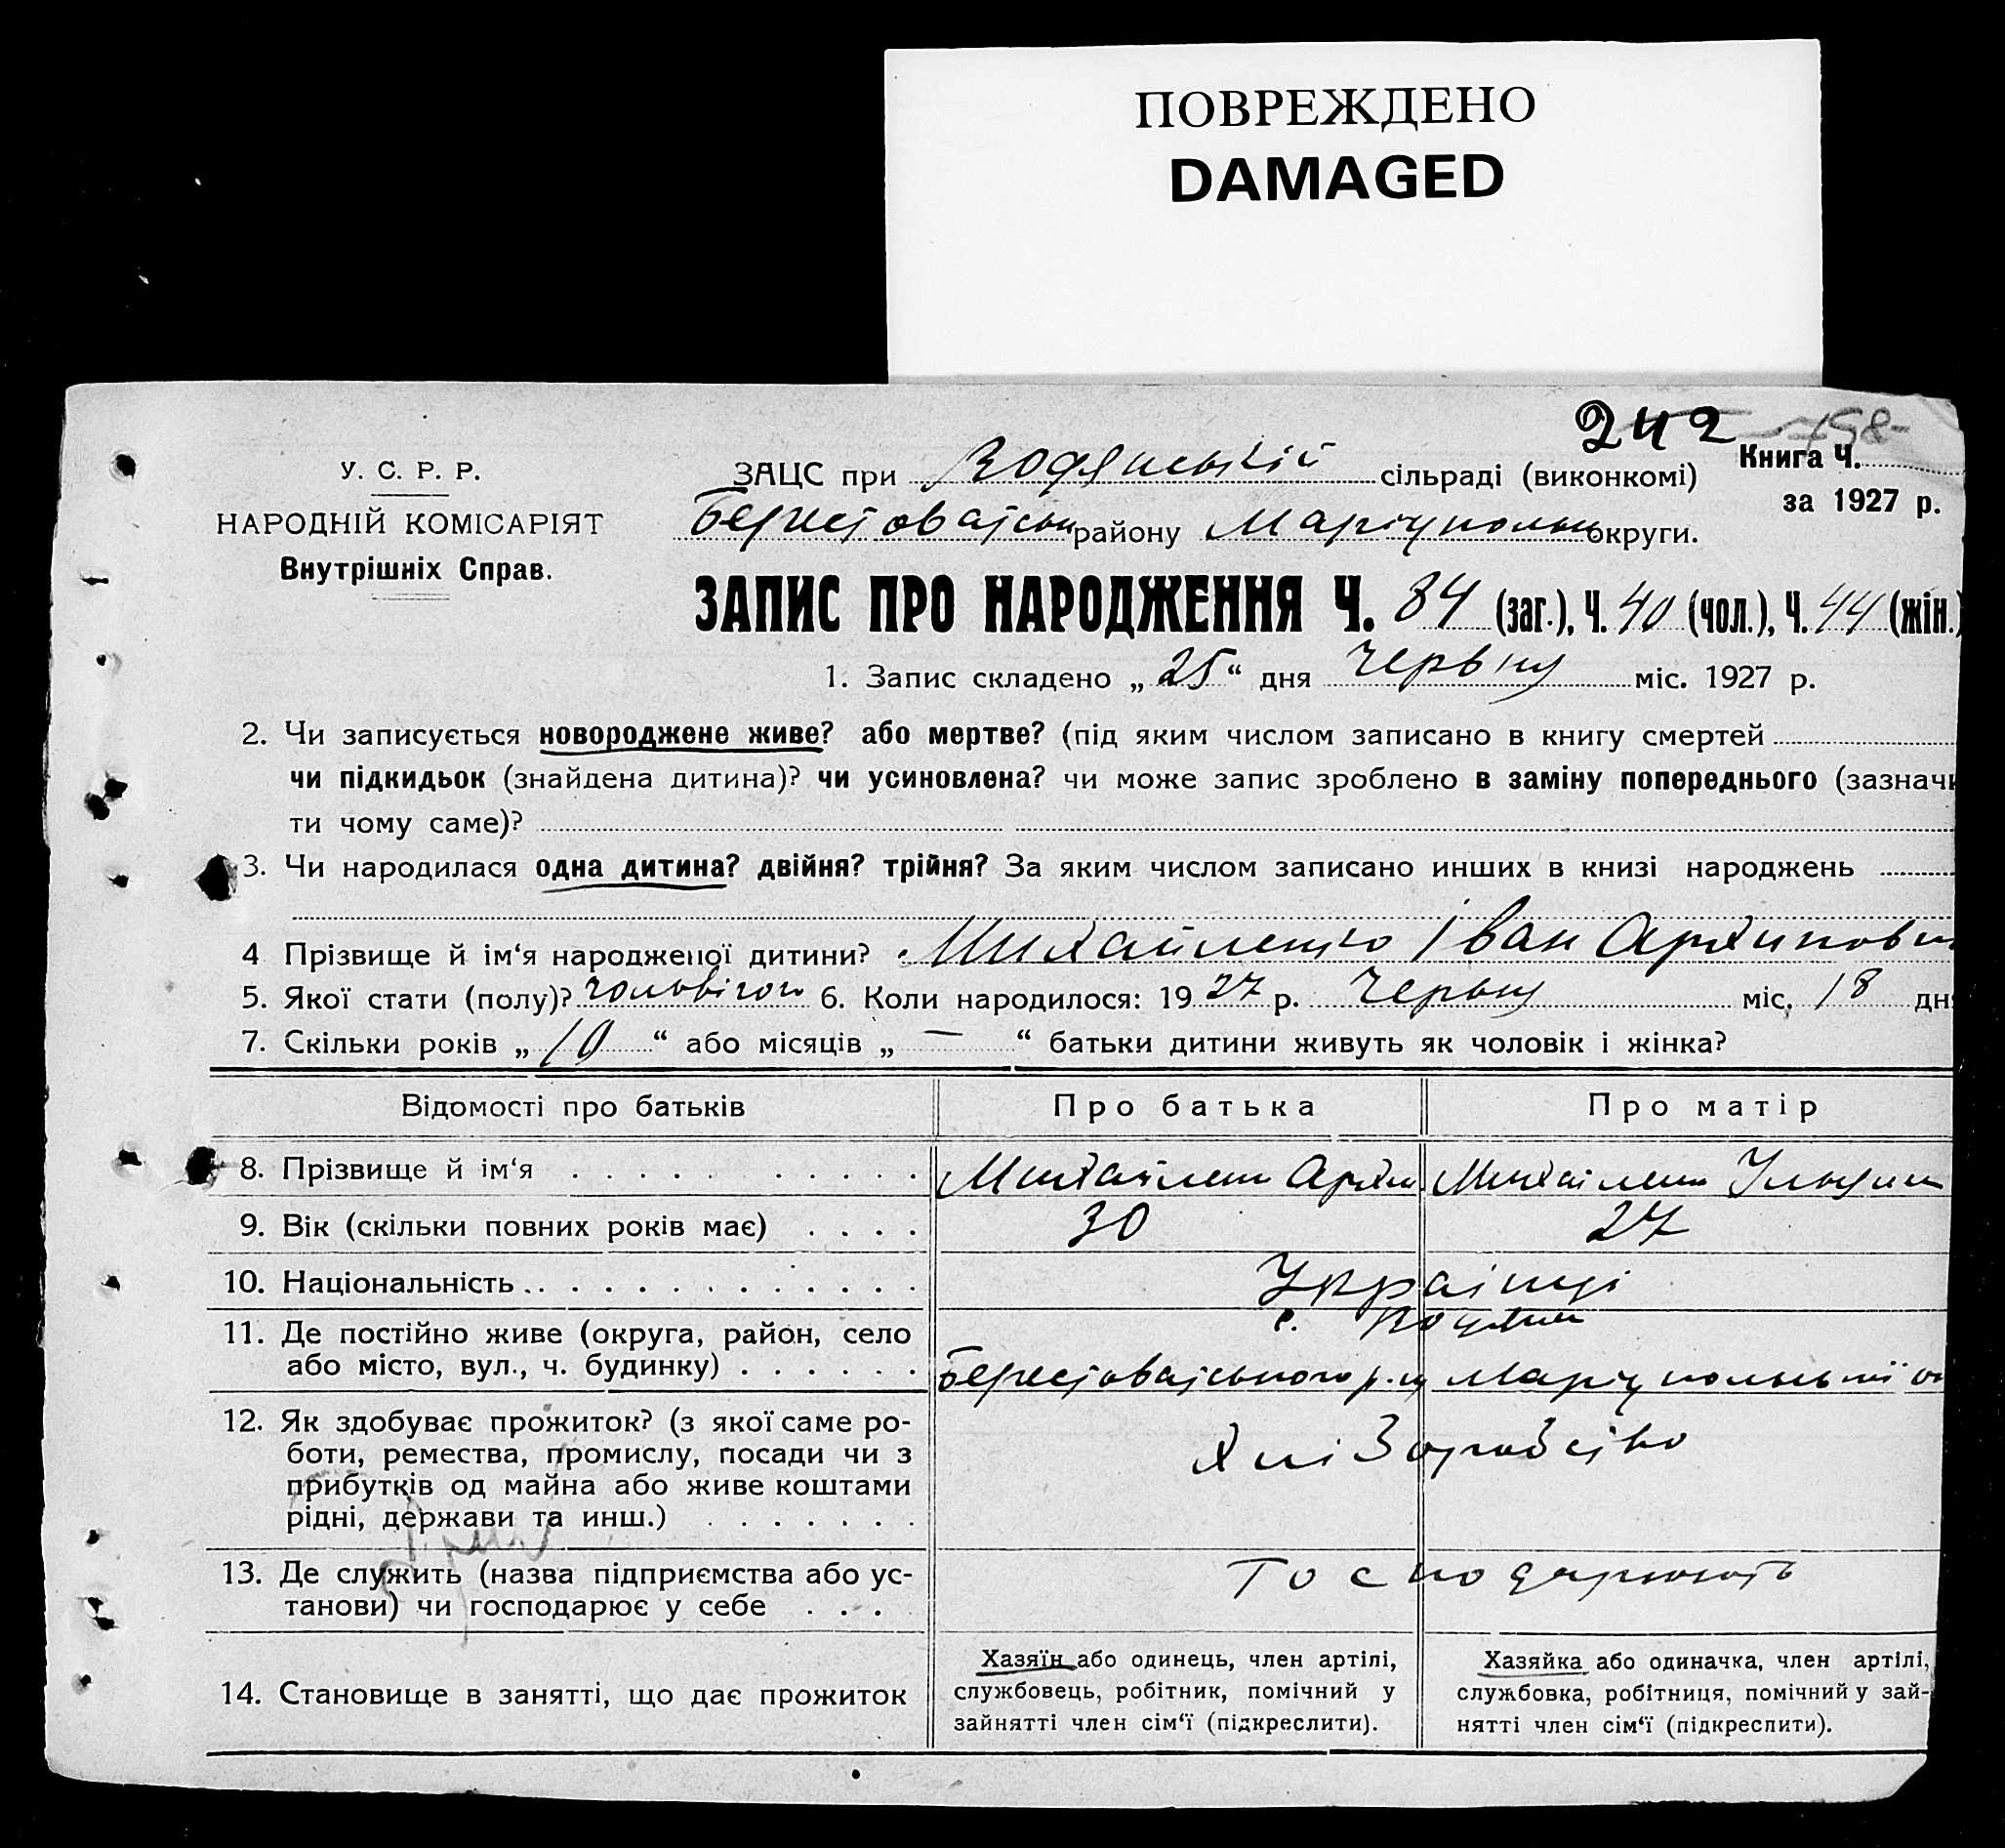 ПОВРЕЖДЕНО
DAMAGED
242
У. С. Р. Р.
НАРОДНІЙ КОМІСАРІЯТ
Внутрішніх Справ.
ЗАЦС при Водянській сільраді (виконкомі)
Книга Ч.
за 1927 р.
Берестоватськ району Маріупольськ округи.
ЗАПИС ПРО НАРОДЖЕННЯ Ч. 84 (заг.), Ч. 40 (чол.), Ч. 44 (жін.)
1. Запис складено „ 25 “ дня Червня міс. 1927 р.
2. Чи записується новороджене живе? або мертве? (під яким числом записано в книгу смертей
чи підкидьок (знайдена дитина)? чи усиновлена? чи може запис зроблено в заміну попереднього (зазначи
ти чому саме)?
3. Чи народилася одна дитина? двійня? трійня? За яким числом записано инших в книзі народжень
4 Прізвище й ім‘я народженої дитини? Михайленко Іван Архипович
5. Якої стати (полу)? чоловічої 6. Коли народилося: 1927 р. Червня міс. 18 дн
7. Скільки років „ 10 “ або місяців „ — “ батьки дитини живуть як чоловік і жінка?
Відомості про батьків Про батька Про матір
8. Прізвище й ім‘я Михайленко Архип Михайленко
9. Вік (скільки повних років має) 30 27
10. Національність Українці
11. Де постійно живе (округа, район, село
с.
або місто, вул., ч. будинку) Берестоватського р-ну Маріупольської ок
12. Як здобуває прожиток? (з якої саме ро-
боти, ремества, промислу, посади чи з
прибутків од майна або живе коштами
рідні, держави та инш.)
хліборобство
13. Де служить (назва підприємства або ус-
танови) чи господарює у себе
Господарюють
14. Становище в занятті, що дає прожиток
Хазяїн або одинець, член артілі,
службовець, робітник, помічний у
зайнятті член сім‘ї (підкреслити).
Хазяйка або одиначка, член артілі,
службовка, робітниця, помічний у зай-
нятті член сім‘ї (підкреслити).